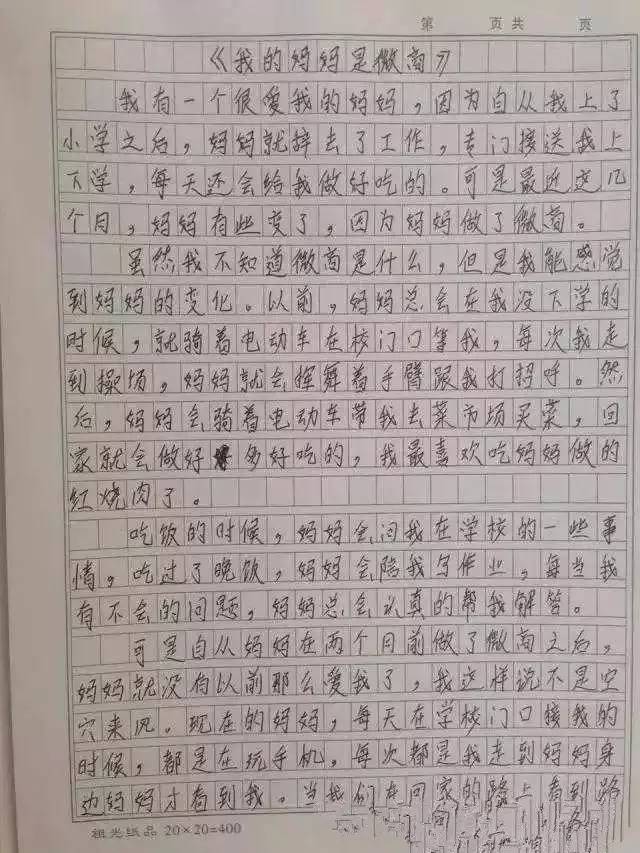 第 页 共 页
《我的妈妈是微商》
我有一个很爱我的妈妈，因为自从我上了
小学之后，妈妈就辞去了工作，专门接送我上
下学，每天还会给我做好吃的。可是最近这几
个月，妈妈有些变了，因为妈妈做了微商。
虽然我不知道微商是什么，但是我能感觉
到妈妈的变化。以前，妈妈总会在我没下学的
时候，就骑着电动车在校门口等我，每次我走
到操场，妈妈就会挥舞着手臂跟我打招呼。然
后，妈妈会骑着电动车带我去菜市场买菜，回
家就会做好多好吃的，我最喜欢吃妈妈做的
红烧肉了。
吃饭的时候，妈妈会问我在学校的一些事
情，吃过了晚饭，妈妈会陪我写作业，每当我
有不会的问题，妈妈总会认真的帮我解答。
可是自从妈妈在两个月前做了微商之后，
妈妈就没有以前那么爱我了，我这样说不是空
穴来风。现在的妈妈，每天在学校门口接我的
时候，都是在玩手机，每次都是我走到妈妈身
边妈妈才看到我。当我们在回家的路上看到路
祖光纸品 20×20=400